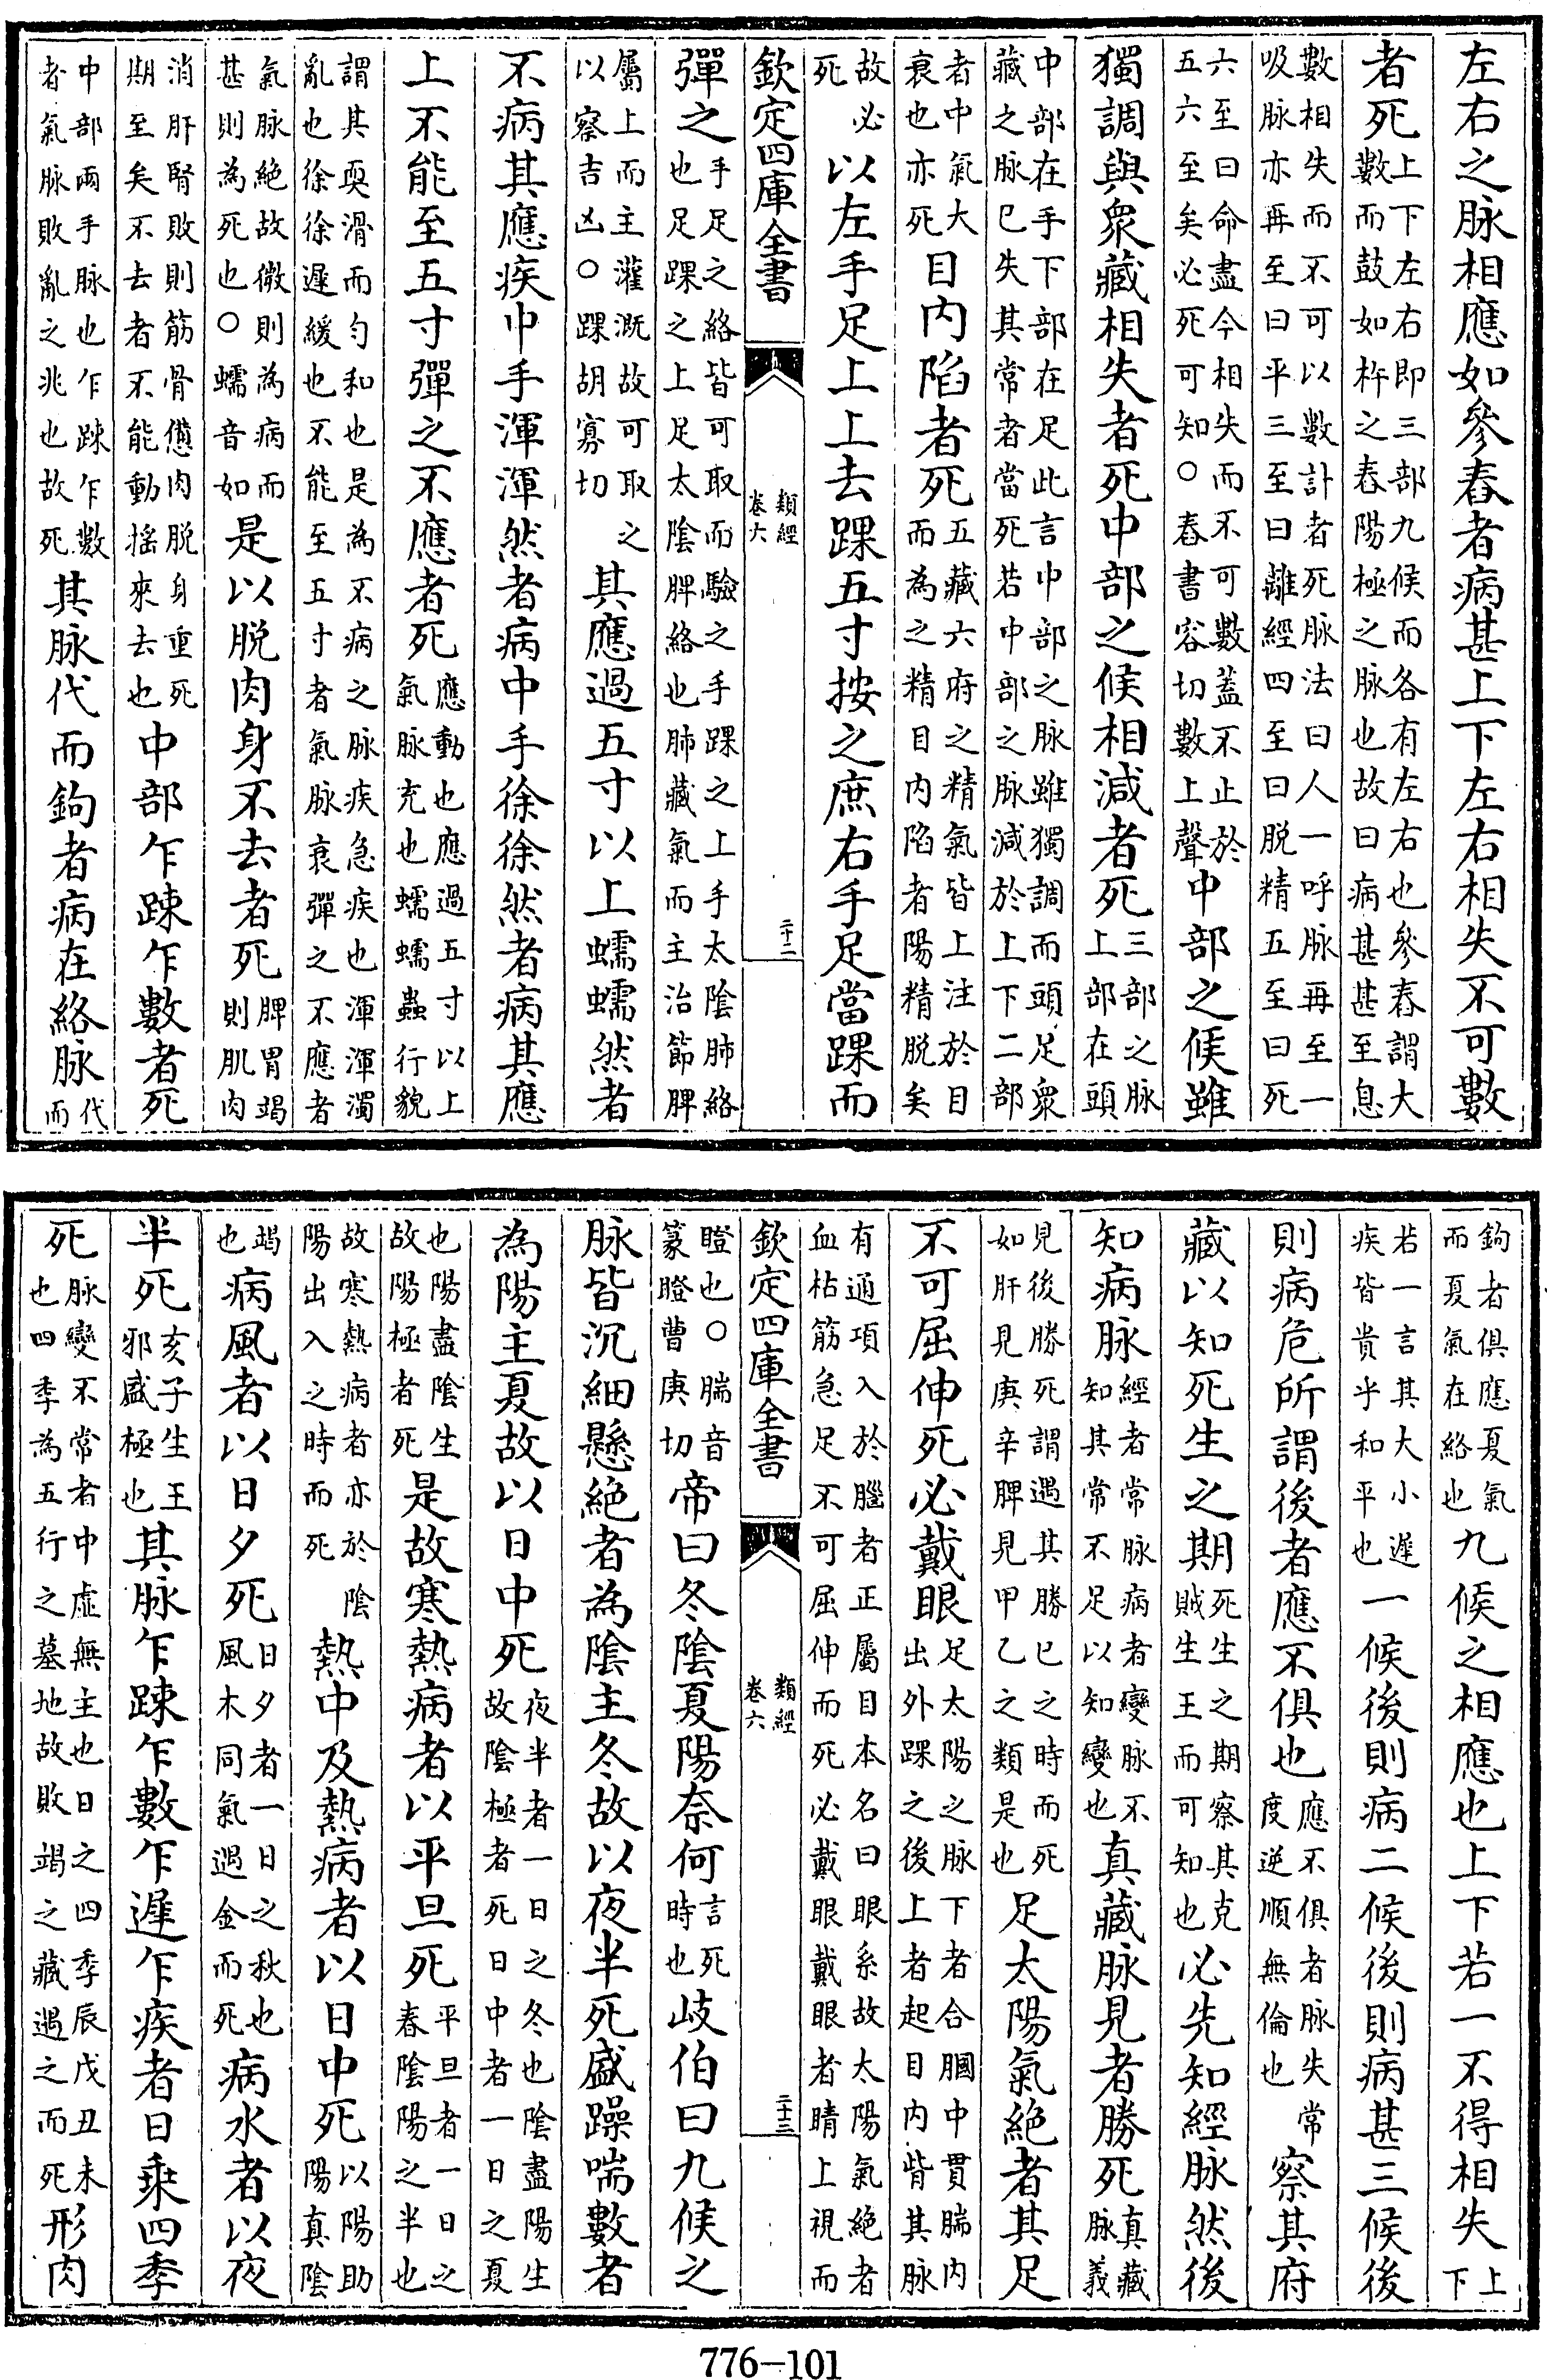 左右之脉相應如參舂者病甚上下左右相失不可數
者死上下左右即三部九候而各有左右也參舂謂大
數而鼓如杵之舂陽極之脉也故曰病甚甚至息
數相失而不可以數計者死脉法曰人一呼脉再至一
吸脉亦再至曰平三至曰離經四至曰脱精五至曰死
六至曰命盡今相失而不可數蓋不止於
五六至矣必死可知○舂書容切數上聲中部之候雖
獨調與衆藏相失者死中部之候相減者死三部之脉
上部在頭
中部在手下部在足此言中部之脉雖獨調而頭足衆
藏之脉已失其常者當死若中部之脉減於上下二部
者中氣大
衰也亦死目内陷者死五藏六府之精氣皆上注於目
而為之精目内陷者陽精脱矣
故必
死以左手足上上去踝五寸按之庶右手足當踝而
欽定四庫全書
類經
卷六
二十二
彈之手足之絡皆可取而驗之手踝之上手太陰肺絡
也足踝之上足太陰脾絡也肺藏氣而主治節脾
屬上而主灌溉故可取之
以察吉凶○踝胡寡切其應過五寸以上蠕蠕然者
不病其應疾中手渾渾然者病中手徐徐然者病其應
上不能至五寸彈之不應者死應動也應過五寸以上
氣脉充也蠕蠕蟲行貌
謂其耎滑而勻和也是為不病之脉疾急疾也渾渾濁
亂也徐徐遲緩也不能至五寸者氣脉衰彈之不應者
氣脉絶故微則為病而
甚則為死也○蠕音如是以脱肉身不去者死脾胃竭
則肌肉
消肝腎敗則筋骨憊肉脱身重死
期至矣不去者不能動摇來去也中部乍踈乍數者死
中部兩手脉也乍踈乍數
者氣脉敗亂之兆也故死其脉代而鉤者病在絡脉代
而
鉤者俱應夏氣
而夏氣在絡也九候之相應也上下若一不得相失上
下
若一言其大小遲
疾皆貴乎和平也一候後則病二候後則病甚三候後
則病危所謂後者應不俱也應不俱者脉失常
度逆順無倫也察其府
藏以知死生之期死生之期察其克
賊生王而可知也必先知經脉然後
知病脉經者常脉病者變脉不
知其常不足以知變也真藏脉見者勝死真藏
脉義
見後勝死謂遇其勝己之時而死
如肝見庚辛脾見甲乙之類是也足太陽氣絶者其足
不可屈伸死必戴眼足太陽之脉下者合膕中貫腨内
出外踝之後上者起目内眥其脉
有通項入於腦者正屬目本名曰眼系故太陽氣絶者
血枯筋急足不可屈伸而死必戴眼戴眼者睛上視而
欽定四庫全書
類經
卷六
二十三
瞪也○腨音
篆瞪曹庚切帝曰冬陰夏陽奈何言死
時也岐伯曰九候之
脉皆沉細懸絶者為陰主冬故以夜半死盛躁喘數者
為陽主夏故以日中死夜半者一日之冬也陰盡陽生
故陰極者死日中者一日之夏
也陽盡陰生
故陽極者死是故寒熱病者以平旦死平旦者一日之
春陰陽之半也
故寒熱病者亦於陰
陽出入之時而死熱中及熱病者以日中死以陽助
陽真陰
竭
也病風者以日夕死日夕者一日之秋也
風木同氣遇金而死病水者以夜
半死亥子生王
邪盛極也其脉乍踈乍數乍遲乍疾者日乘四季
死脉變不常者中虚無主也日之四季辰戌丑未
也四季為五行之墓地故敗竭之藏遇之而死形肉
776-101